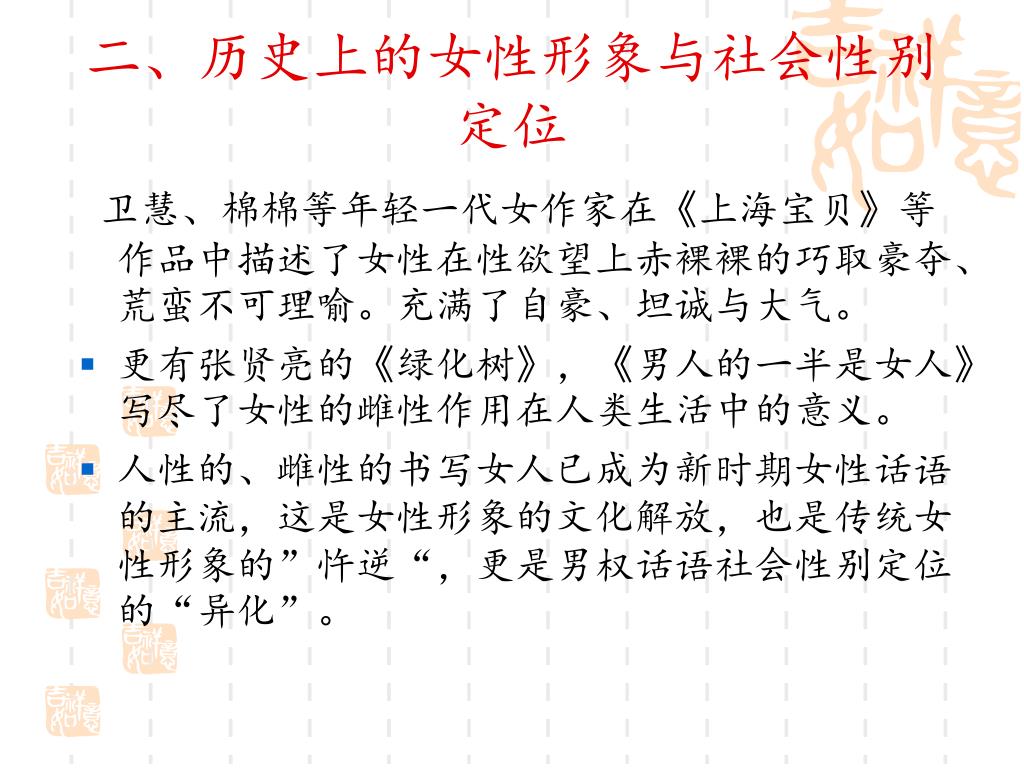 二、历史上的女性形象与社会性别
定位
卫慧、棉棉等年轻一代女作家在《上海宝贝》等
作品中描述了女性在性欲望上赤裸裸的巧取豪夺、
荒蛮不可理喻。充满了自豪、坦诚与大气。
更有张贤亮的《绿化树》,《男人的一半是女人》
写尽了女性的雌性作用在人类生活中的意义。
人性的、雌性的书写女人已成为新时期女性话语
的主流，这是女性形象的文化解放，也是传统女
性形象的”忤逆“，更是男权话语社会性别定位
的“异化”。
吉祥如意
吉祥如意
吉祥如意
吉祥如意
吉祥如意
吉祥如意
吉祥如意